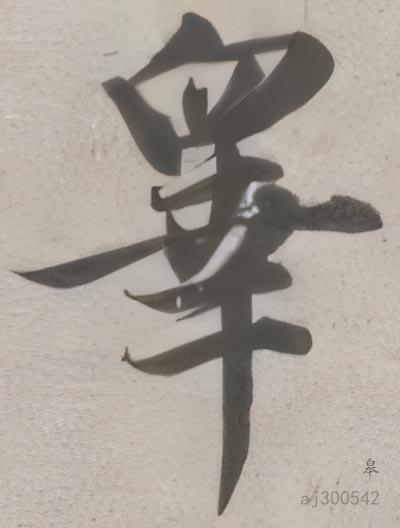 皋
皋
aj300542